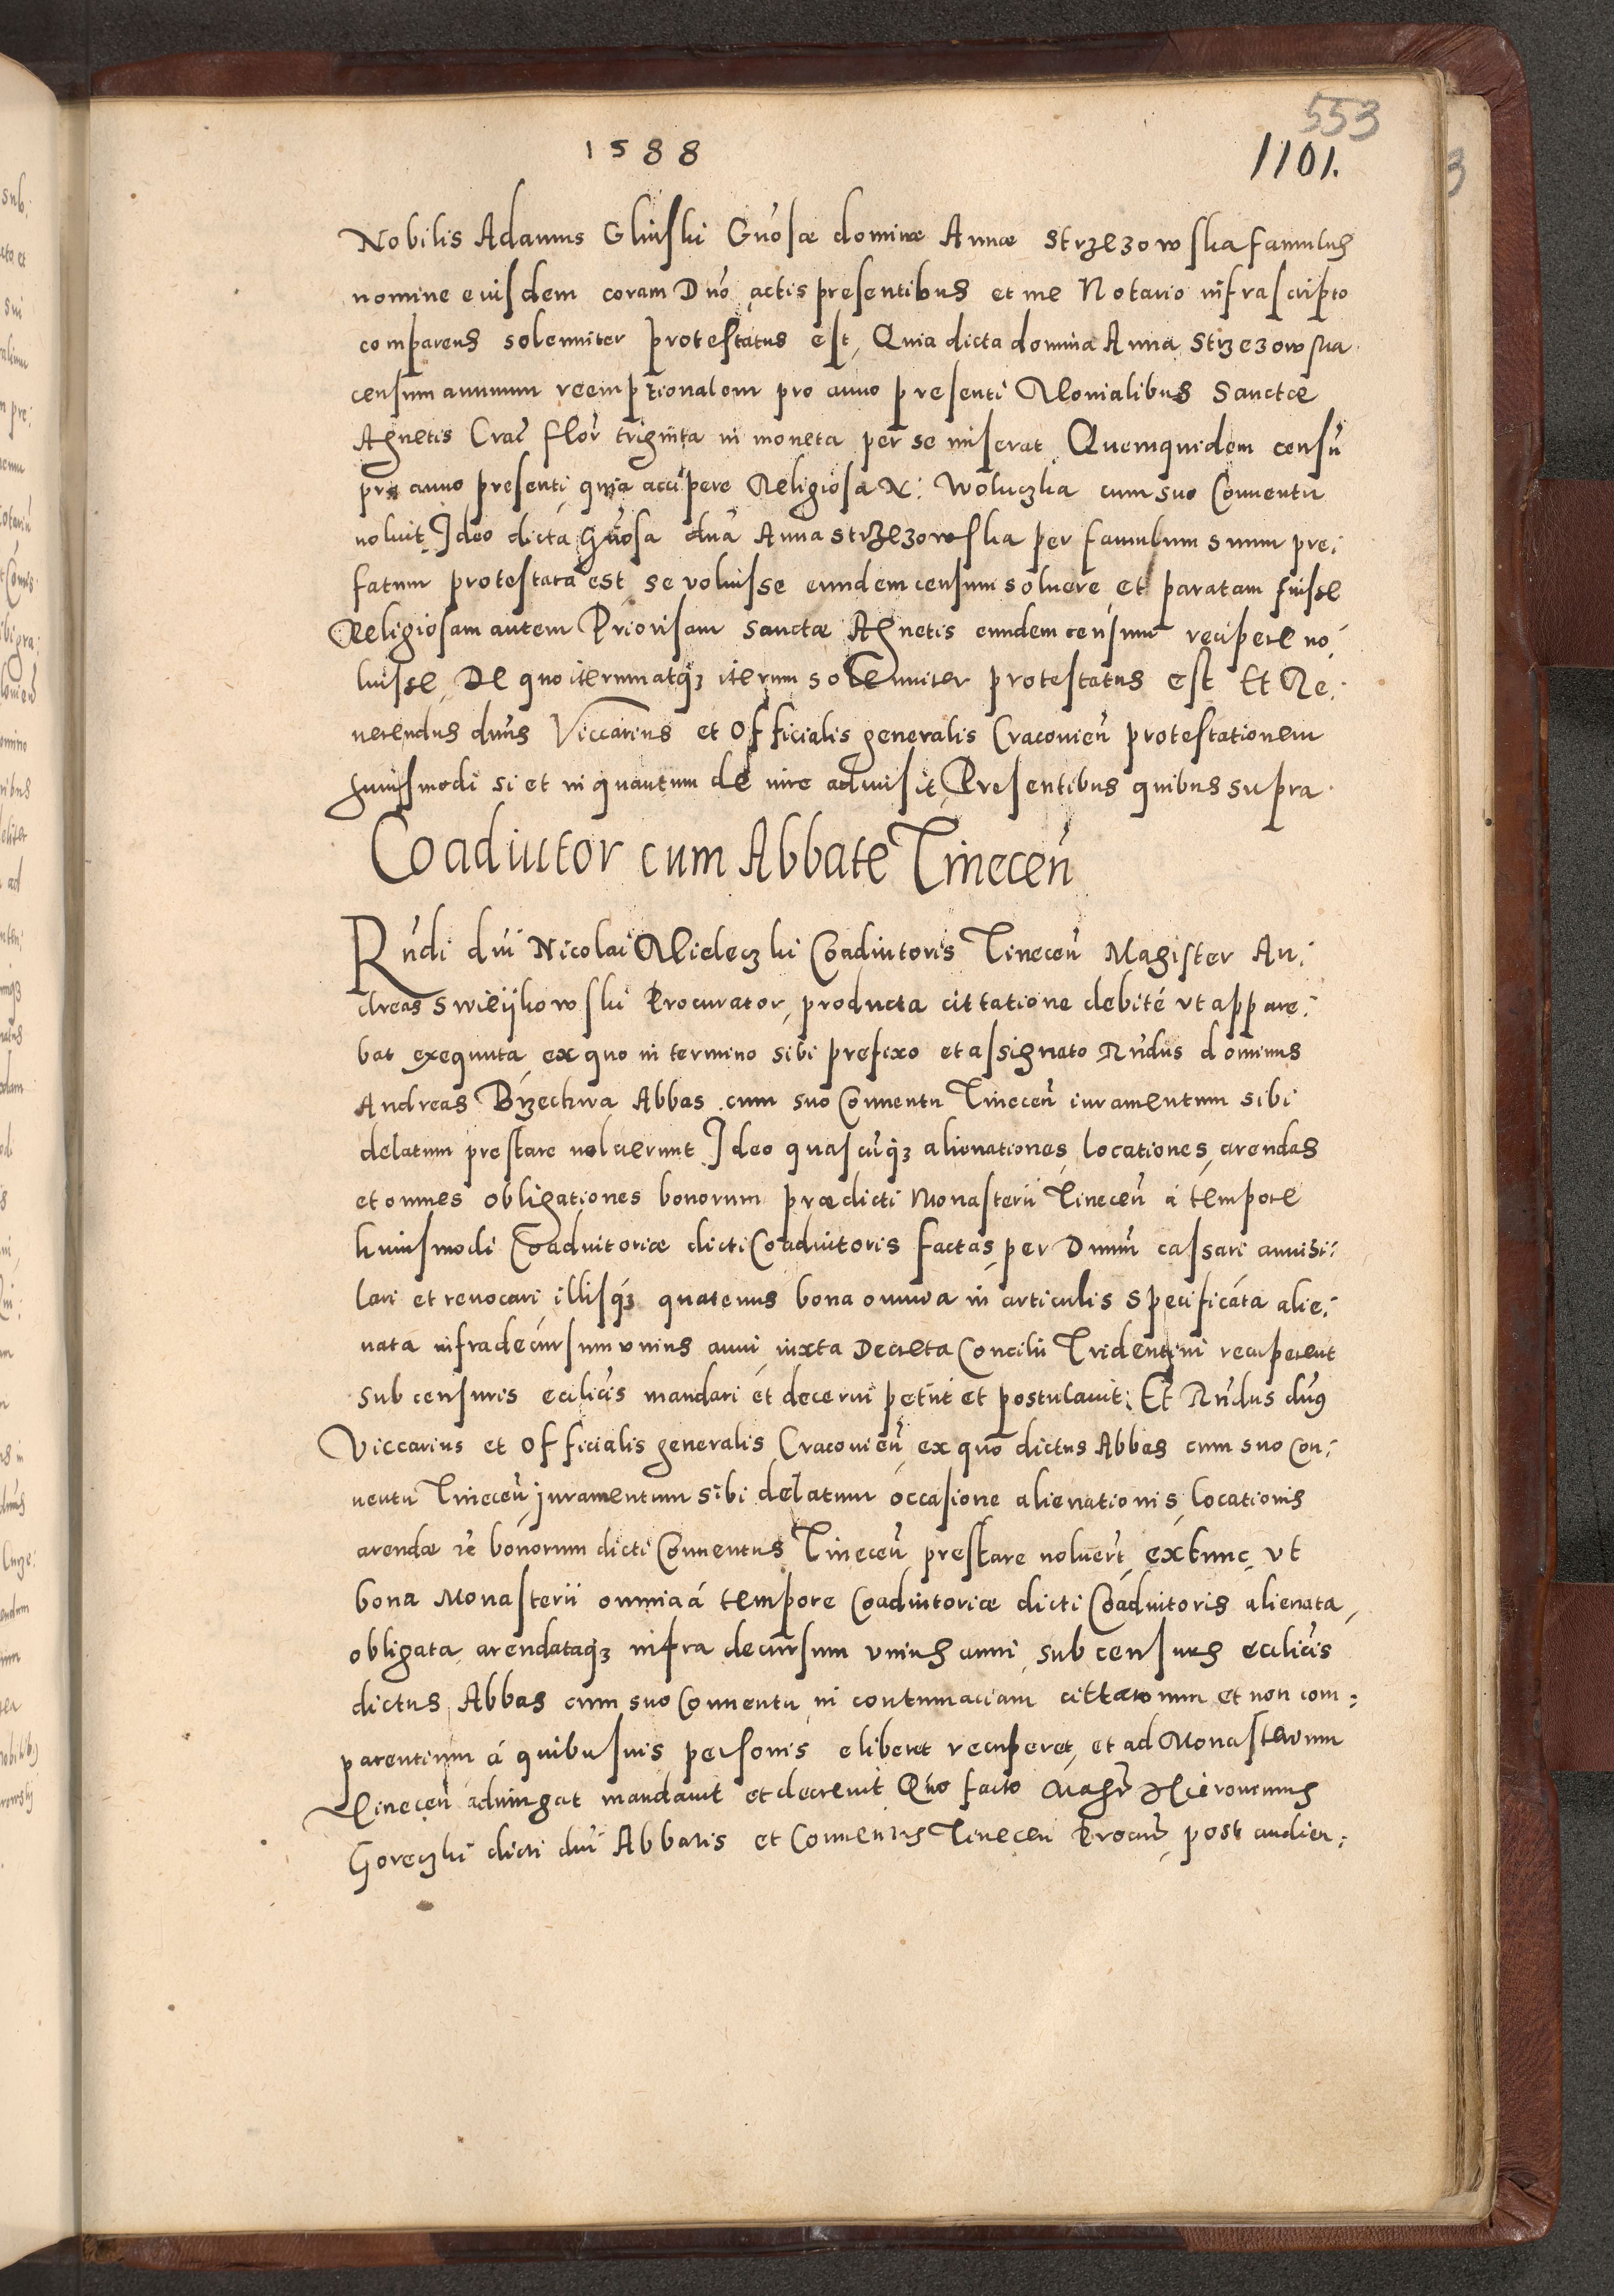 553
1588
1101.
Nobilis Adamus Glinski Gnosæ dominæ Annæ Strzezowska famulus
nomine eiusdem coram Dno actis presentibus et me Notario infrascripto
comparens solemniter protestatus est, Quia dicta domina Anna Strzezowska
censum annuum reemptionalem pro anno presenti Monialibus Sanctæ
Agnetis Crac̃ flor̃ triginta in moneta per se miserat Quemquidem censũ
pro anno presenti quia accipere Religiosa N: Woluczka cum suo Conuentu
noluit Ideo dicta Gnosa dna Anna Strzezowska per famulum suum pre:
fatum protestata est se voluisse eundem censum soluere et paratam fuisse
Religiosam autem Priorisam Sanctæ Agnetis eundem censum recipere no:
luisse, De quo iterum atq3 iterum solemniter protestatus est Et Re:
uerendus dnus Viccarius et Officialis generalis Cracouien̄ protestationem
huiusmodi si et in quantum de iure admisit, Presentibus quibus supra
Coadiutor cum Abbate Tinecen̄
Rndi dni Nicolai Mieleczki Coadiutoris Tinecen̄ Magister An:
dreas Swieijkowski Procurator, producta cittatione debité vt appare:
bat exequuta, ex quo in termino sibi prefixo et assignato Rndus dominus
Andreas Brzechwa Abbas cum suo Conuentu Tinecen̄ iuramentum sibi
delatum prestare noluerunt Ideo quascũq3 alienationes, locationes, arendas
et omnes obligationes bonorum prædicti Monasterii Tinecen̄ á tempore
huiusmodi Coadiutoriæ dicti Coadiutoris factas, per Dnum cassari annihi:
lari et reuocari illisq3 quatenus bona omnia in articulis specificata alie:
nata infra decursum vnius anni iuxta Decreta Concilii Tridentini recuperent
sub censuris ecclicis mandari et decerni petiit et postulauit: Et Rndus dnus
Viccarius et Officialis generalis Cracouien̄, ex quo dictus Abbas cum suo Con:
uentu Tinecen̄, juramentum sibi delatum occasione alienationis, locationis
arendæ &c̃ bonorum dicti Conuentus Tinecen̄ prestare noluer̃t, extunc, vt
bona Monasterii omnia á tempore Coadiutoriæ dicti Coadiutoris alienata,
obligata, arendataq3 infra decursum vnius anni, sub censuris ecclicis
dictus Abbas cum suo Conuentu in contumaciam cittatorum et non com:
parentium á quibusuis personis eliberet recuperet, et ad Monasterium
Tinecen̄ adiungat mandauit et decreuit Quo facto Magr̃ Hieronimus
Goreczki dicti dni Abbatis et Conuentus Tinecen̄ Procur̃, post audien: